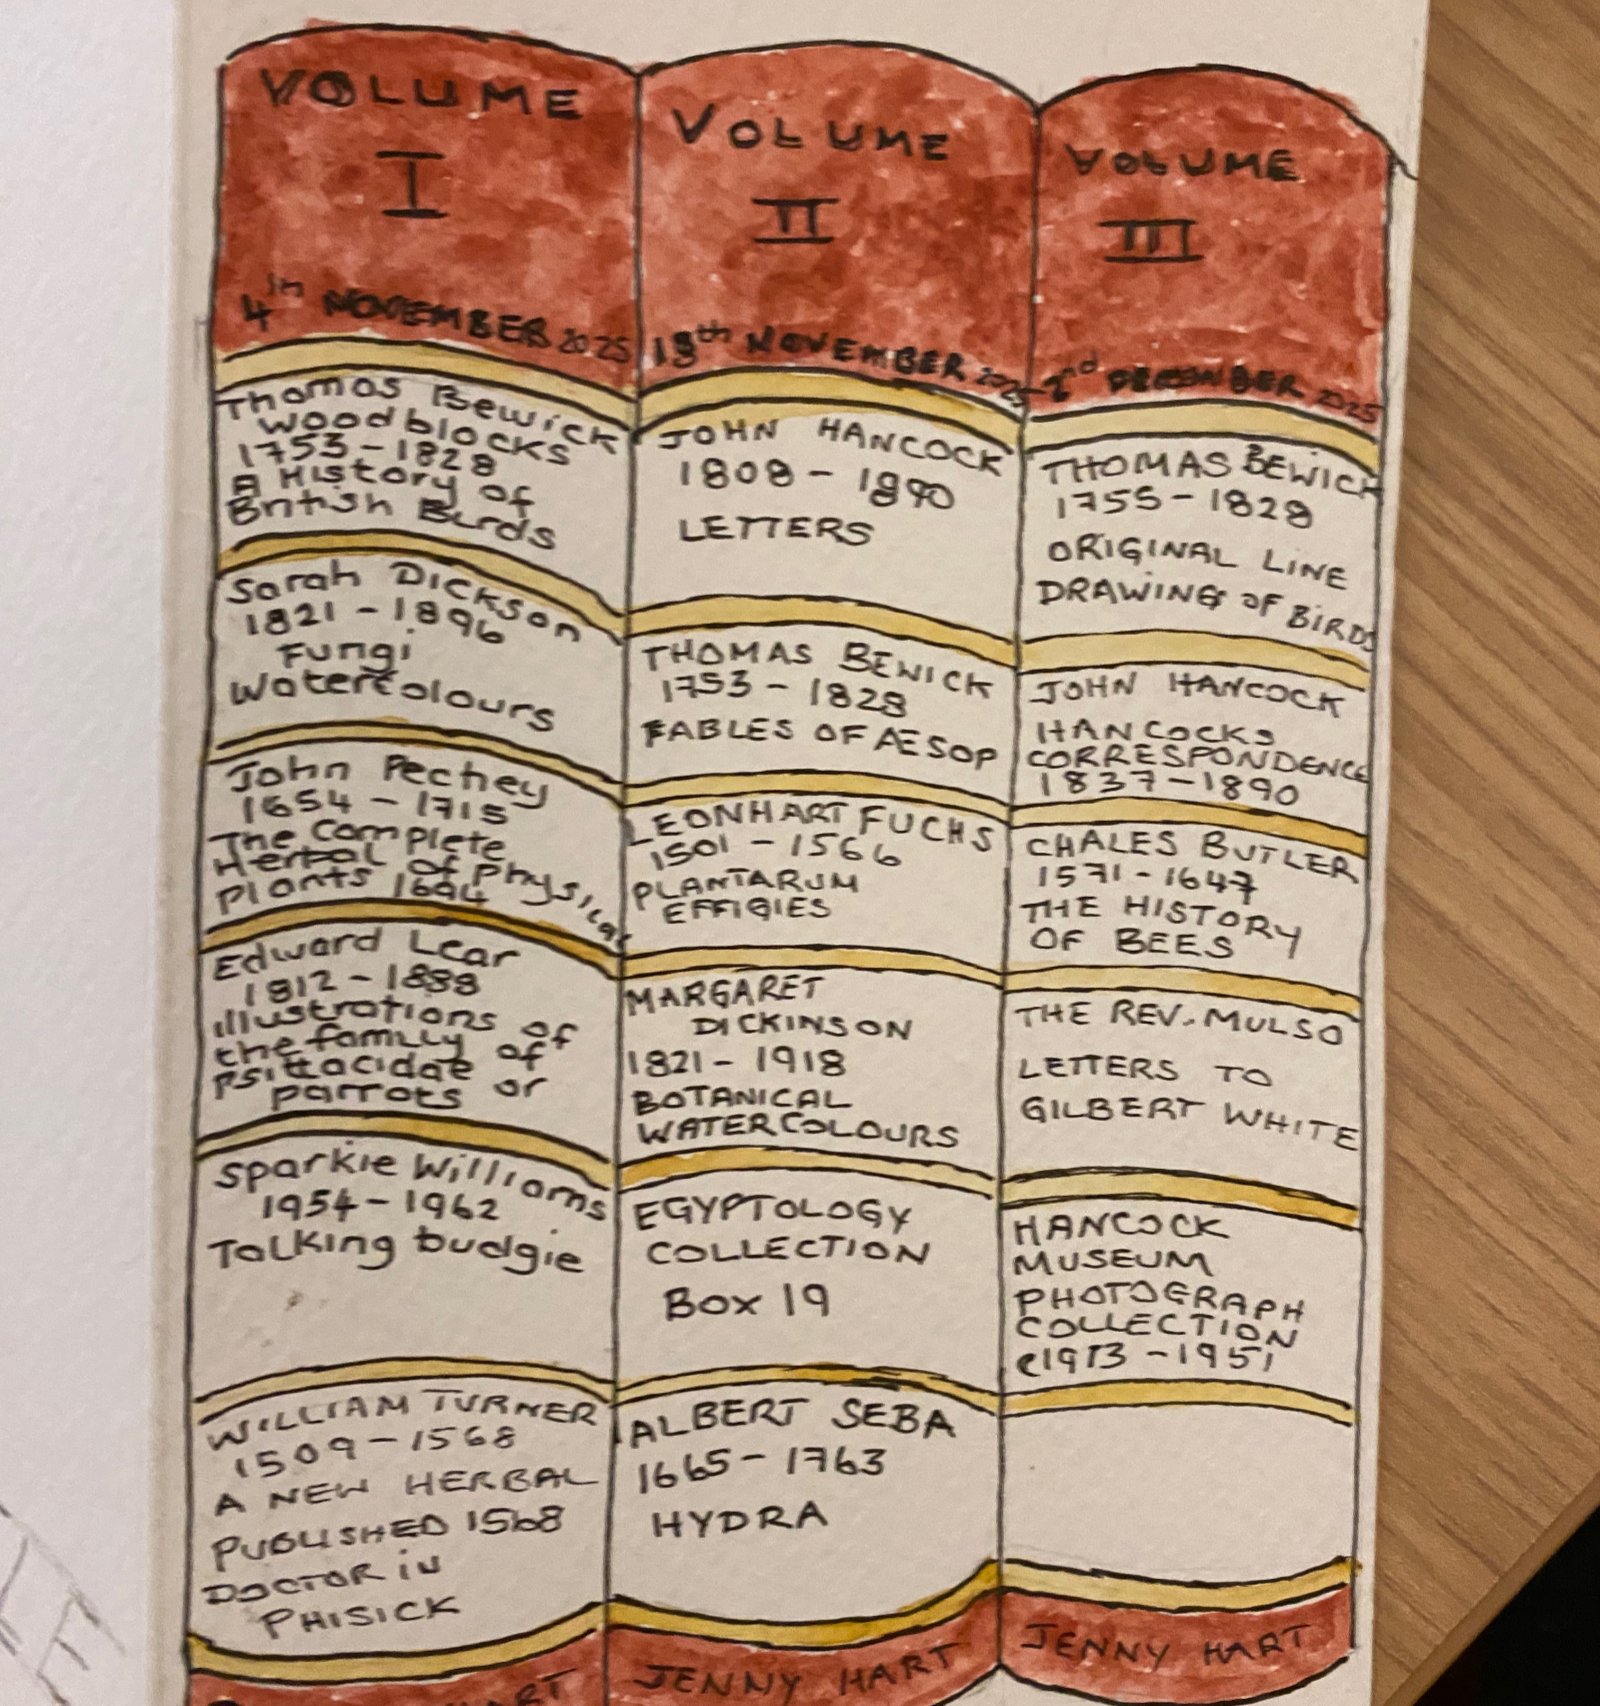 VOLUME
I
4th NOVEMBER 2025
Thomas Bewick
Woodblocks
1753-1828
A History of
British Birds
Sarah Dickson
1821-1896
Fungi
Watercolours
John Pechey
1654-1715
The Complete
Herbal of Physical
Plants 1694
Edward Lear
1812-1888
illustrations of
the family of
Psittacidae or
parrots
Sparkie Williams
1954-1962
Talking budgie
WILLIAM TURNER
1509-1568
A NEW HERBAL
PUBLISHED 1568
DOCTOR in
PHISICK
HART
VOLUME
II
18th NOVEMBER 2025
JOHN HANCOCK
1808-1890
LETTERS
THOMAS BEWICK
1753-1828
FABLES OF AESOP
LEONHART FUCHS
1501-1566
PLANTARUM
EFFIGIES
MARGARET
DICKINSON
1821-1918
BOTANICAL
WATERCOLOURS
EGYPTOLOGY
COLLECTION
Box 19
ALBERT SEBA
1665-1763
HYDRA
JENNY HART
VOLUME
III
2nd DECEMBER 2025
THOMAS BEWICK
1755-1828
ORIGINAL LINE
DRAWING OF BIRDS
JOHN HANCOCK
HANCOCKS
CORRESPONDENCE
1837-1890
CHALES BUTLER
1571-1647
THE HISTORY
OF BEES
THE REV. MULSO
LETTERS TO
GILBERT WHITE
HANCOCK
MUSEUM
PHOTOGRAPH
COLLECTION
c1913-1951
JENNY HART